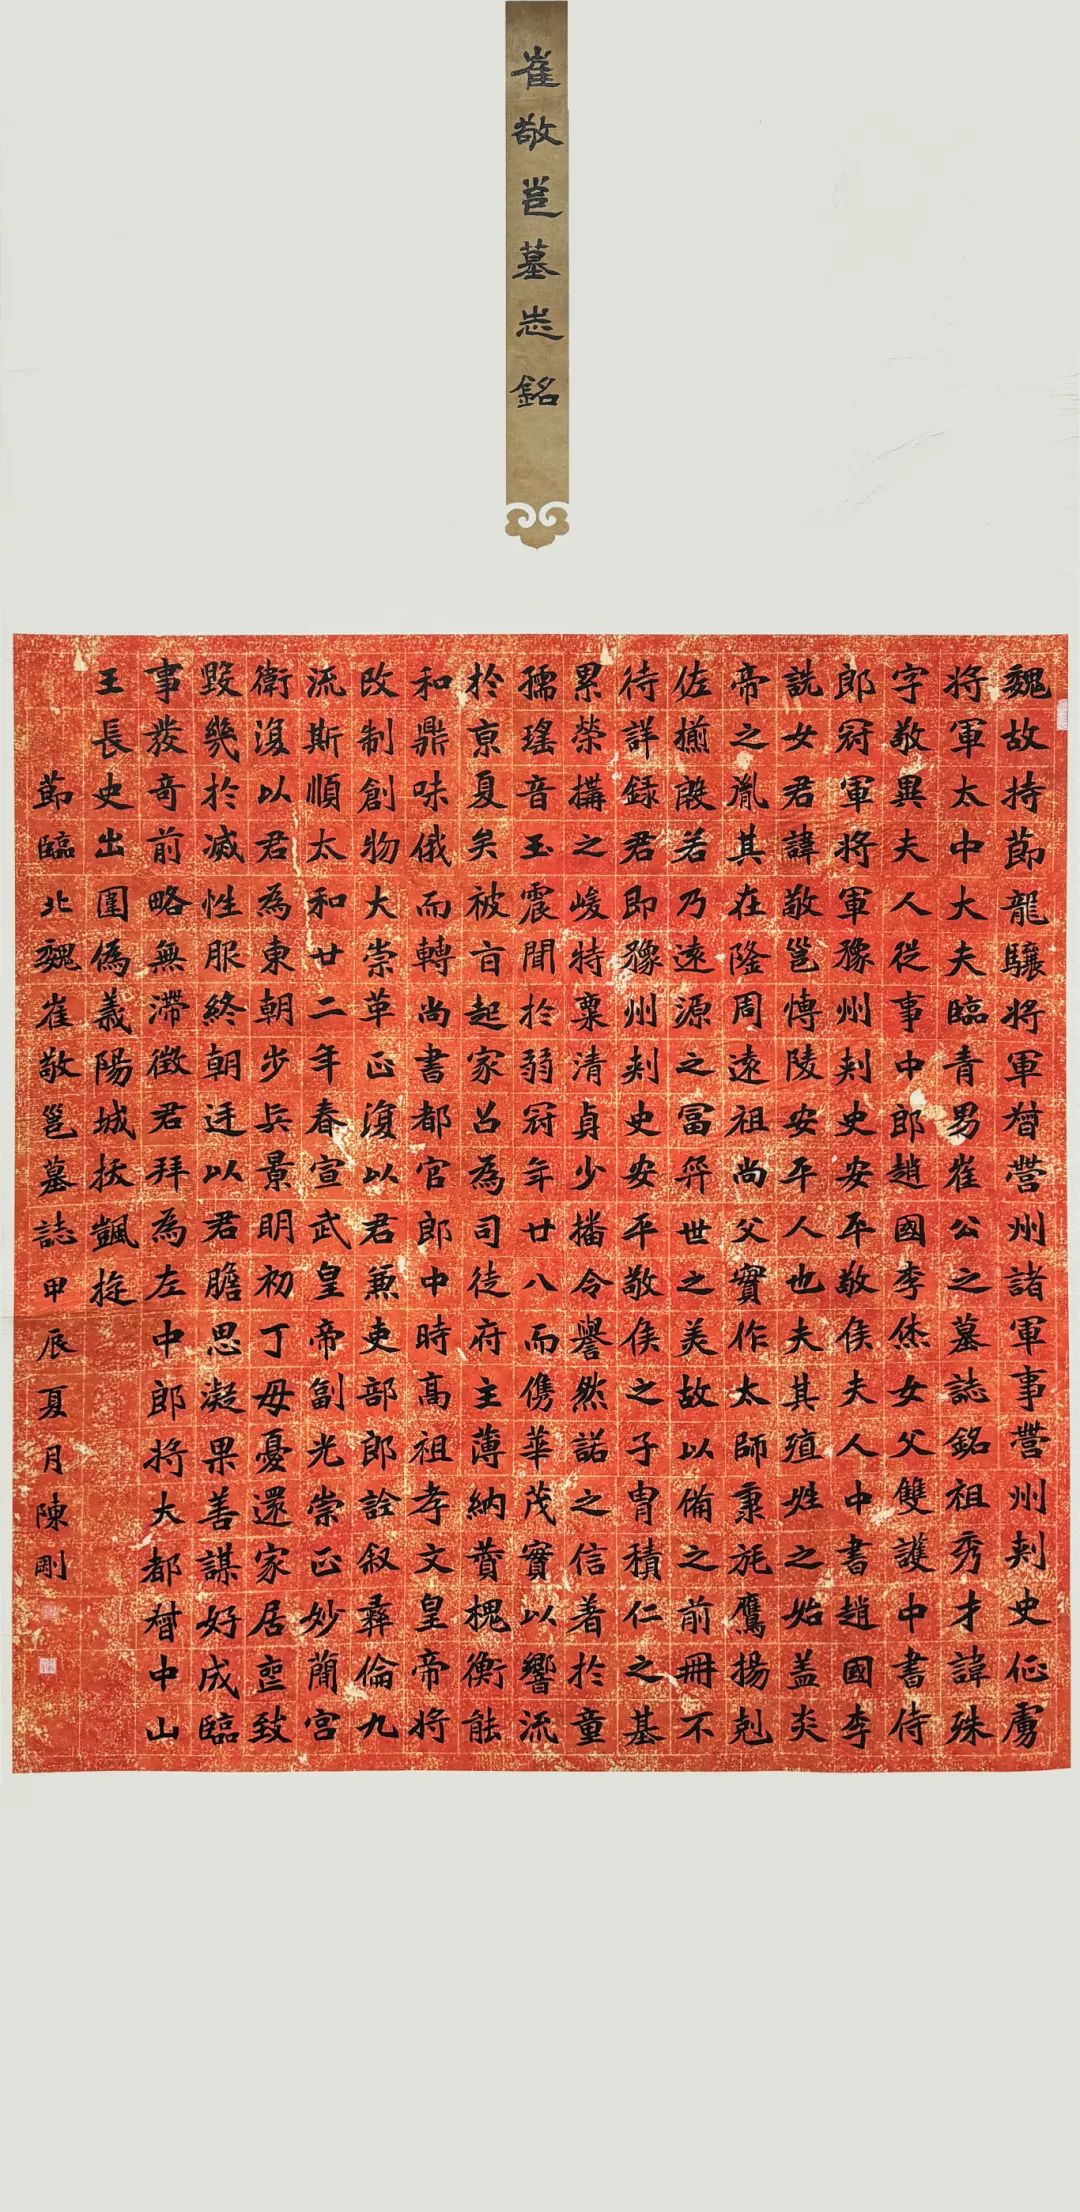 崔敬邕墓志銘
魏故持節龍驤將軍督營州諸軍事營州刺史征虜
將軍太中大夫臨青男崔公之墓誌銘祖秀才諱殊
字敬異夫人從事中郎趙國李烋女父雙護中書侍
郎冠軍將軍豫州刺史安平敬侯夫人中書趙國李
詵女君諱敬邕博陵安平人也夫其殖姓之始蓋炎
帝之胤其在隆周遠祖尚父實作太師秉旄鷹揚剋
佐揃殷若乃遠源之富弈世之美故以備之前冊不
待詳錄君即豫州刺史安平敬侯之子胄積仁之基
累榮搆之峻特稟清貞少播令譽然諾之信着於童
孺瑤音玉震聞於弱冠年廿八而儁華茂實以響流
於京夏矣被旨起家召為司徒府主薄納贊槐衡能
和鼎味俄而轉尚書都官郎中時高祖孝文皇帝將
改制創物大崇革正復以君兼吏部郎詮叙彝倫九
流斯順太和廿二年春宣武皇帝副光崇正妙簡宮
衛復以君為東朝步兵景明初丁母憂還家居喪致
毀幾於滅性服終朝廷以君膽思凝果善謀好成臨
事發奇前略無滯徵君拜為左中郎將大都督中山
王長史出圍偽義陽城扶飄旋
節臨北魏崔敬邕墓誌甲辰夏月陳剛